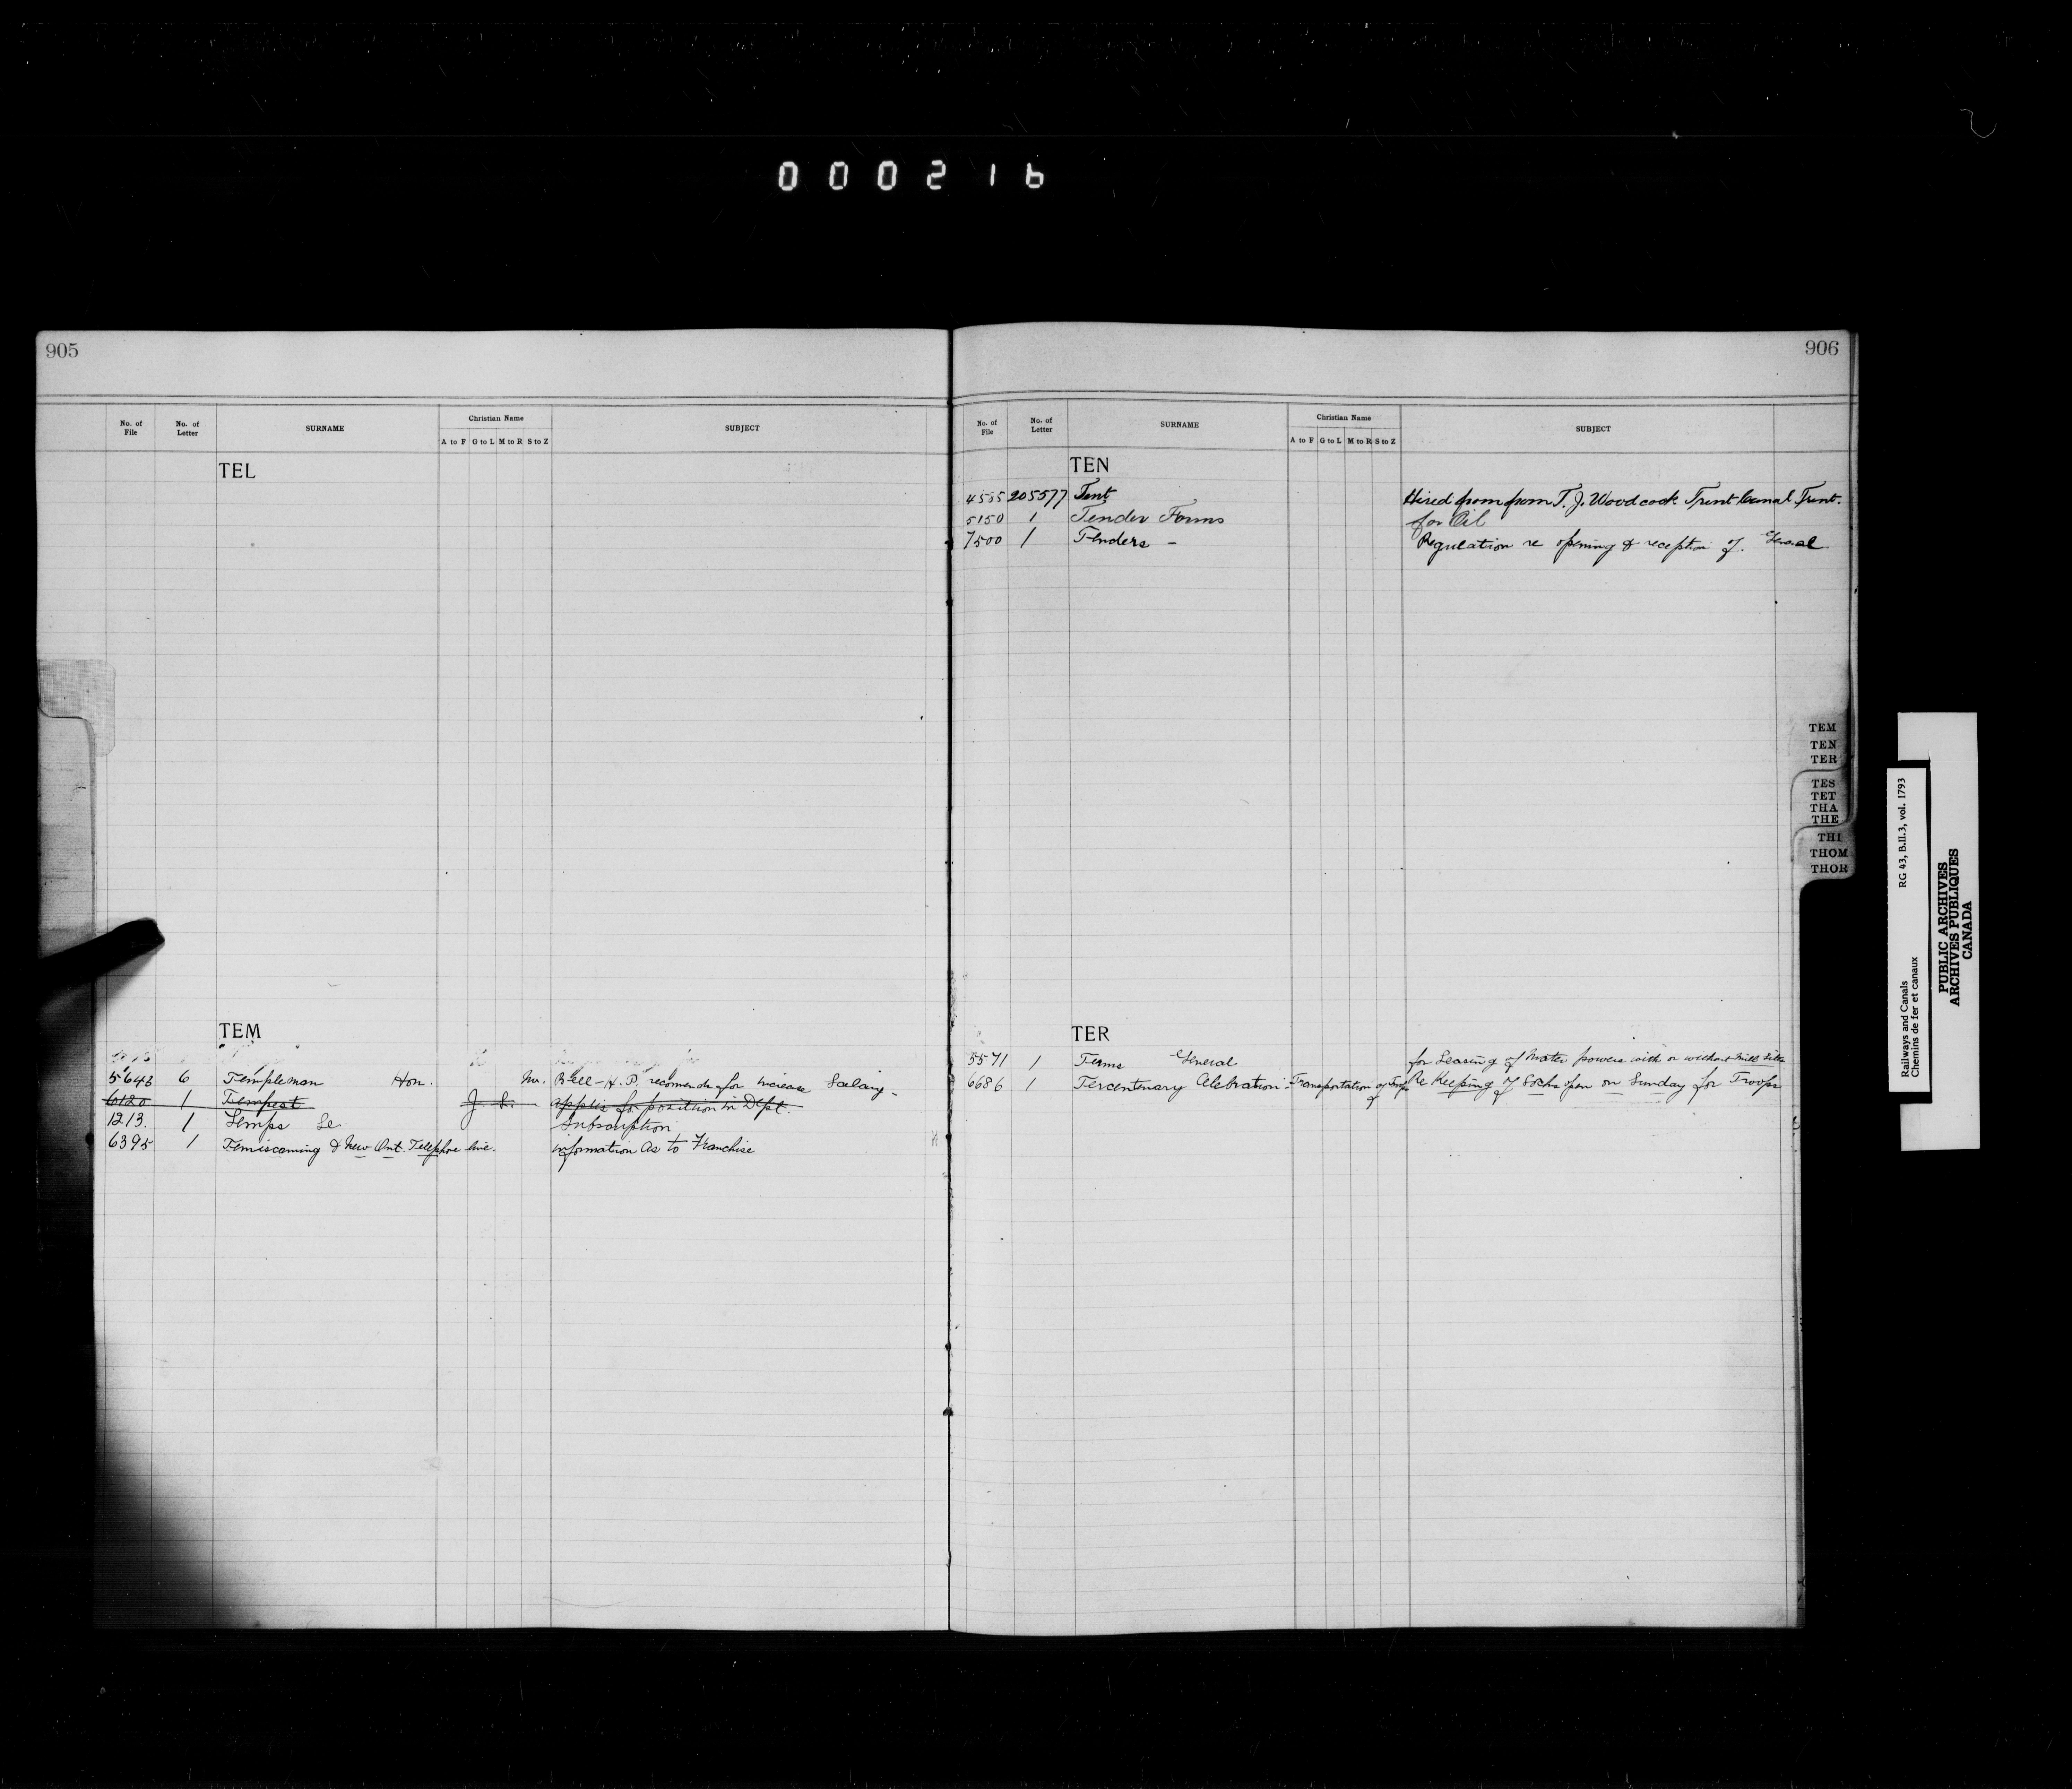 000216
905
No. of File No. of Letter SURNAME Christian Name SUBJECT
A to F G to L M to R S to Z
TEL
TEM
5646 6 Templeman Hon. Wm. Bell - H. P. recomends for increase Salary -
6120 1 Tempest J. applis for position in Dept.
1213. 1 Temps Le Subscription
6395 1 Temiscaming & New Ont. Telephone line. information as to Franchise
906
No. of File No. of Letter SURNAME Christian Name SUBJECT
A to F G to L M to R S to Z
TEN
4555 205577 Tent Hired from from T. J. Woodcock Trent Canal Trent.
5150 1 Tender Forms for Oil
7500 1 Tenders - Regulation re opening & reception of. General
TER
5571 1 Terms General for Leasing of Water powers with or without Mill Sites
6686 1 Tercentenary Celebration - Transportation of Troops Re Keeping of Locks open on Sunday for Troops
TEM
TEN
TER
TES
TET
THA
THE
THI
THOM
THOR
Railways and Canals RG 43, B.II.3, vol. 1793
Chemins de fer et canaux
PUBLIC ARCHIVES
ARCHIVES PUBLIQUES
CANADA